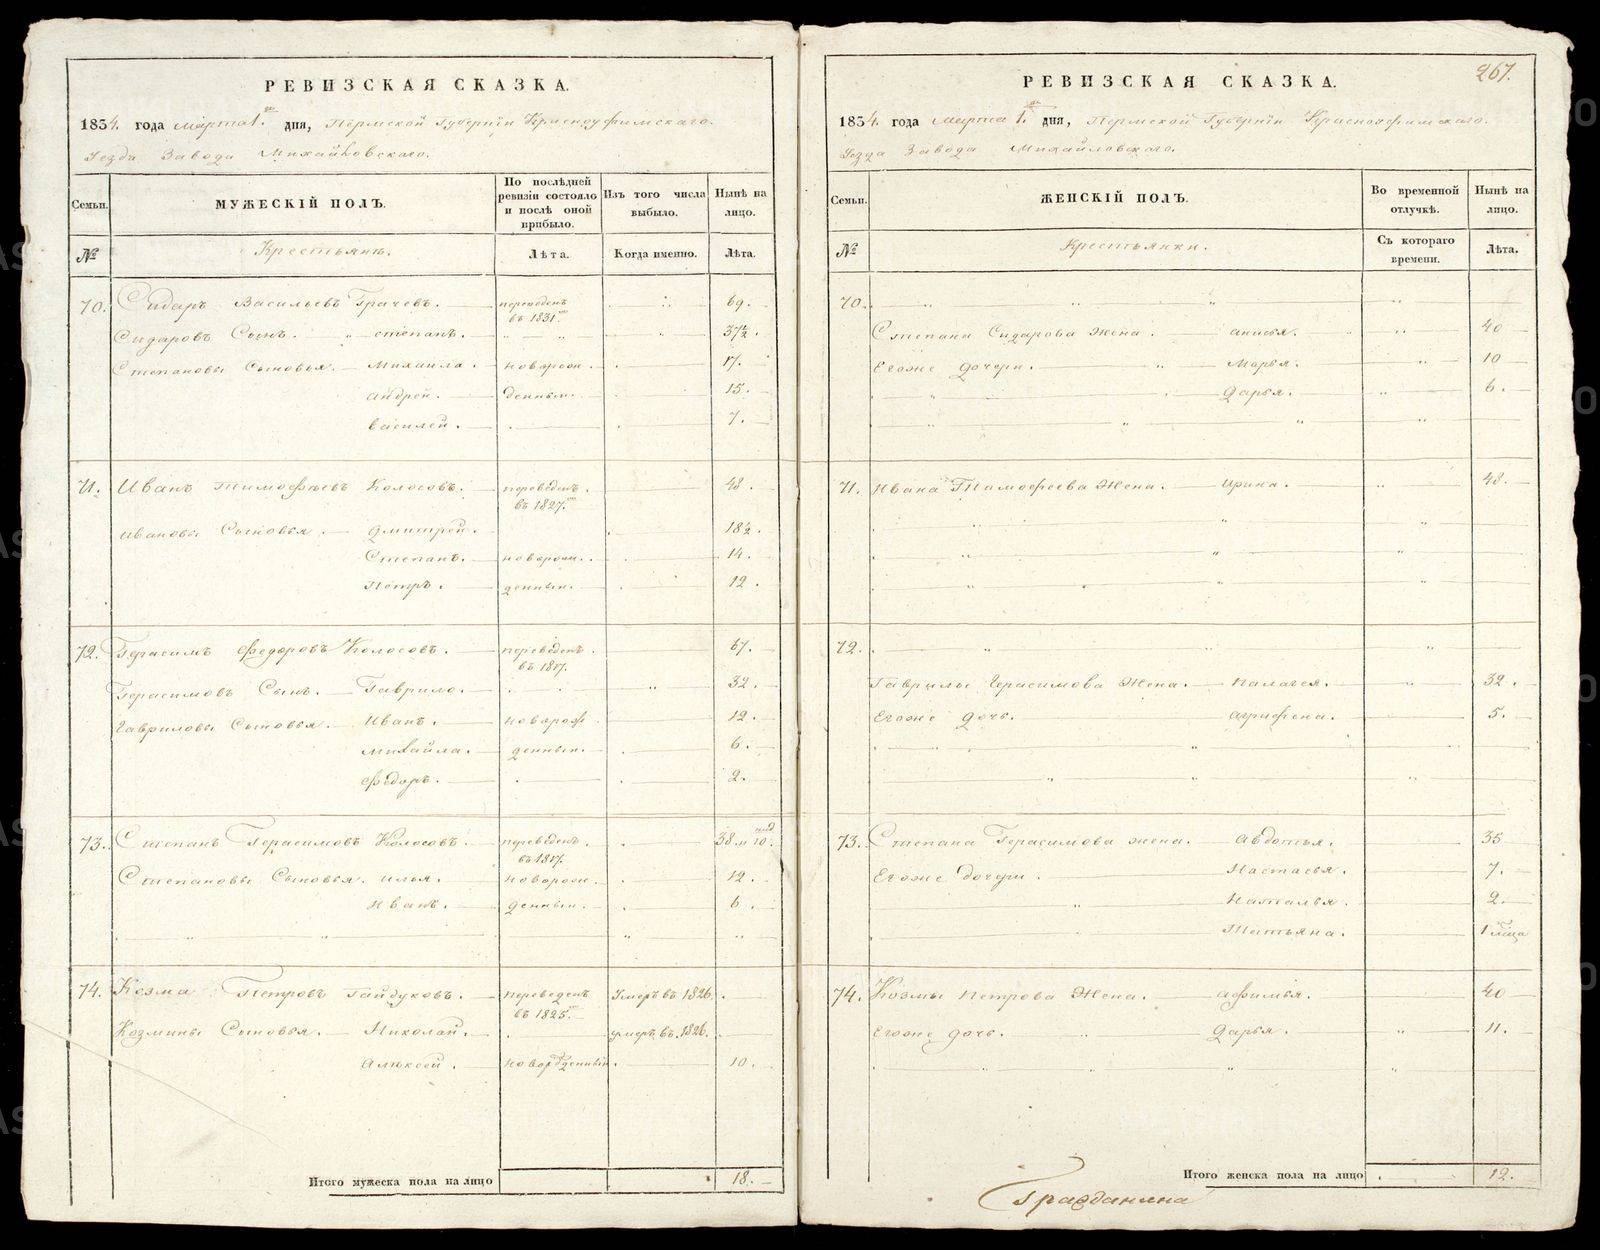 РЕВИЗСКАЯ СКАЗКА.
1834. года марта 1го. дня, Пермской Губернiи Красноуфимскаго.
Уезда Завода Михайловскаго.
Семьи.
МУЖЕСКIЙ ПОЛЪ.
По послѣдней ревизiи состояло и послѣ оной прибыло.
Изъ того числа выбыло.
Нынѣ на лицо.
№
Крестьянѣ.
Лѣта.
Когда именно.
Лѣта.
70. Сидаръ Васильевъ Грачевъ. переведенъ 69.
въ 1831.
Сидаровъ Сынъ. Степанъ. 37½.
Степановы Сыновья. Михаила. новорож. 17.
Андрей. денныи. 15.
Василей. 7.
71. Иванъ Тимофѣевъ Колосовъ. переведен. 48.
въ 1827.
Ивановы Сыновья. Дмитрей. 18½.
Степанъ. новорож. 14.
Петръ. денныи. 12.
72. Герасимъ Федоровъ Колосовъ. переведенъ. 67.
въ 1817.
Герасимовъ Сынъ. Гаврило. 32.
Гавриловы Сыновья. Иванъ. новорож 12.
Михайла. денныи. 6.
Федоръ. 2.
73. Степанъ Герасимовъ Колосовъ. переведенъ. 38 и 10.
въ 1817.
Степановы Сыновья. Илья. новорож. 12.
Иванъ. денныи. 6.
74. Козма Петровъ Гайдуковъ. переведенъ Умеръ въ 1826.
въ 1825.
Козмины Сыновья. Николай. умеръ въ. 1826.
Алѣксей. новорожденныи. 10.
Итого мужеска пола на лицо 18.
267.
РЕВИЗСКАЯ СКАЗКА.
1834. года марта 1го. дня, Пермской Губернiи Красноуфимскаго.
Уезда Завода Михайловскаго.
Семьи.
ЖЕНСКIЙ ПОЛЪ.
Во временной отлучкѣ.
Нынѣ на лицо.
№
Крестьянки.
Съ котораго времени.
Лѣта.
70.
Степана Сидарова Жена. Анисья. 40
Егоже дочери. Марья. 10
Дарья. 6.
71. Ивана Тимофеева Жена. Ирина. 48.
72.
Гаврилы Герасимова Жена. Палагея. 32.
Егоже дочь. Агрифена. 5.
73. Степана Герасимова жена. Авдотья. 35
Егоже дочери. Настасья. 7.
Наталья. 2.
Татьяна. 1
74. Козмы Петрова Жена. Афимья. 40
Егоже дочь. Дарья. 11.
Итого женска пола на лицо 12.
Гражданина